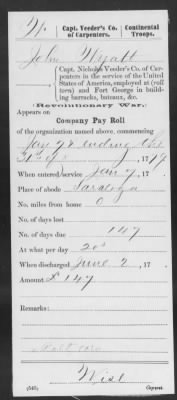 W. Capt. Veeder's Co. of Carpenters. Continental Troops.
John Wyatt
Capt. Nicholas Veeder's Co. of Carpenters in the service of the United States of America, employed at (roll torn) and Fort George in building barracks, bateaux, &c.
Revolutionary War.
Appears on
Company Pay Roll
of the organization named above, commencing
Jan 7 & ending the
31st of , 1779
When entered service Jan 7, 17
Place of abode Saratoga
No. miles from home 0
No. of days lost
No. of days due 147
At what per day 20s
When discharged June 2, 17
Amount £ 147
Remarks:
Roll torn
Wise
(545) Copyist.